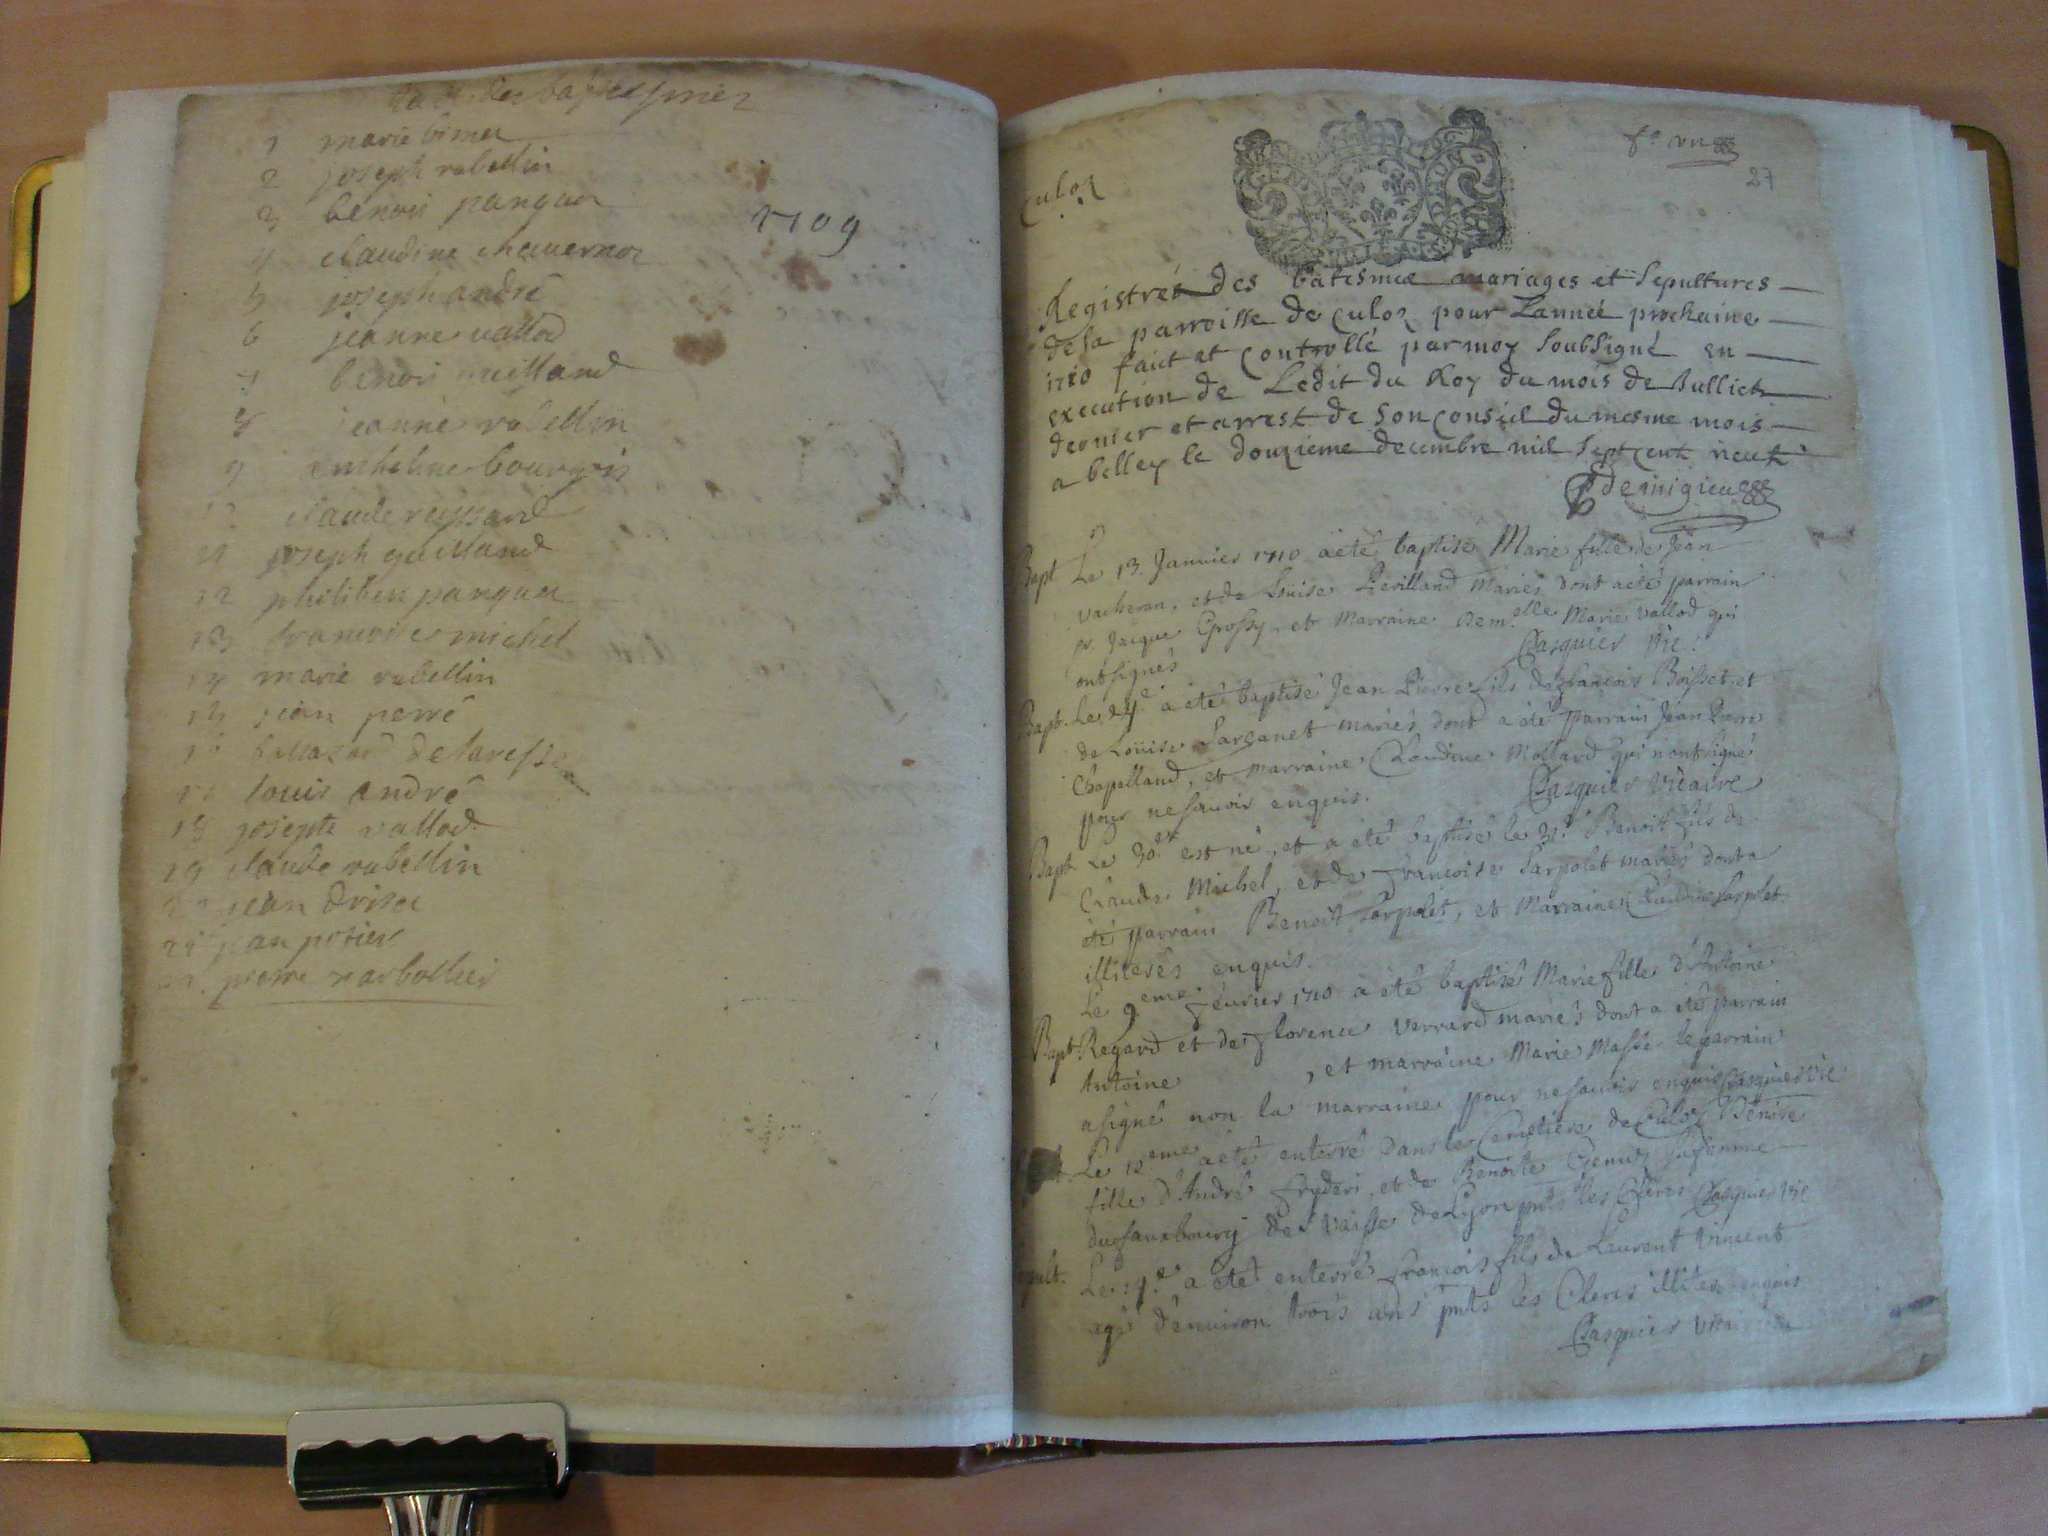 des baptesmes
1 marie bimet
2 joseph rabellin
3 benoit panquet
4 claudine chavernoz
5 joseph andré
6 jeanne vallod
7 benoit guilland
8 jeanne rabellin
9 micheline bourgois
claude reissard
11 joseph guilland
12 philibert panquet
13 francoise michel
14 marie rabellin
jean perré
baltazar delaresse
louis andré
18 josepte vallod
19 claude rabellin
jean
21 jean potier
pierre narbollier
1709
27
Culoz
Registre des batesmes mariages et sepultures
de la parroisse de culoz pour Lanneé prochaine
1710 faict et controllé par moy soubsigné en
execution de Ledit du Roy du mois de Julliet
dernier et arrest de son conseil du mesme mois
a belley le douzieme decembre mil sept cent neuf
demigieu
Bapt Le 13. Janvier 1710 a été baptisé Marie fille de Jean
vacheran, et de Loüise Pevilland Mariés dont a été parrain
sr. Jacque Grossy, et Marraine Dem.elle Marie Vallod qui
ont signés Pasquier vic.
Bapt. Le 24e a été baptisé Jean Pierre fils de francois Boisset et
de Loüise Sarçanet mariés dont a été parrain Jean Pierre
Chapelland, et marraine Claudine Mollard qui n'ont signé
pour ne savoir enquis. Pasquier Vicaire
Bapt Le 30e est né, et a été baptisé le 31e Benoit fils de
Claude Michel, et de francoise Sarpolet mariés dont a
été parrain Benoit Sarpolet, et Marraine Claudine Sarpolet
illiterés enquis.
Le 9.eme fevrier 1710 a été baptisé Marie fille d'Antoine
Bapt. Regard et de florence Verrard mariés dont a été parrain
Antoine , et marraine Marie Masse le parrain
a signé non la marraine pour ne savoir enquis Pasquier vic
Le 12.eme a été enterré dans le Cemetiere de Culoz
fille d'André et de Benoite sa femme
du fauxbourg de Vaisse de Lyon pnts les Clercs Pasquier vic
pult. Le 14.e a été enterré francois fils de Laurent Vincent
agé d'environ trois ans pnts les Clercs illiter. enquis
Pasquier Vicaire